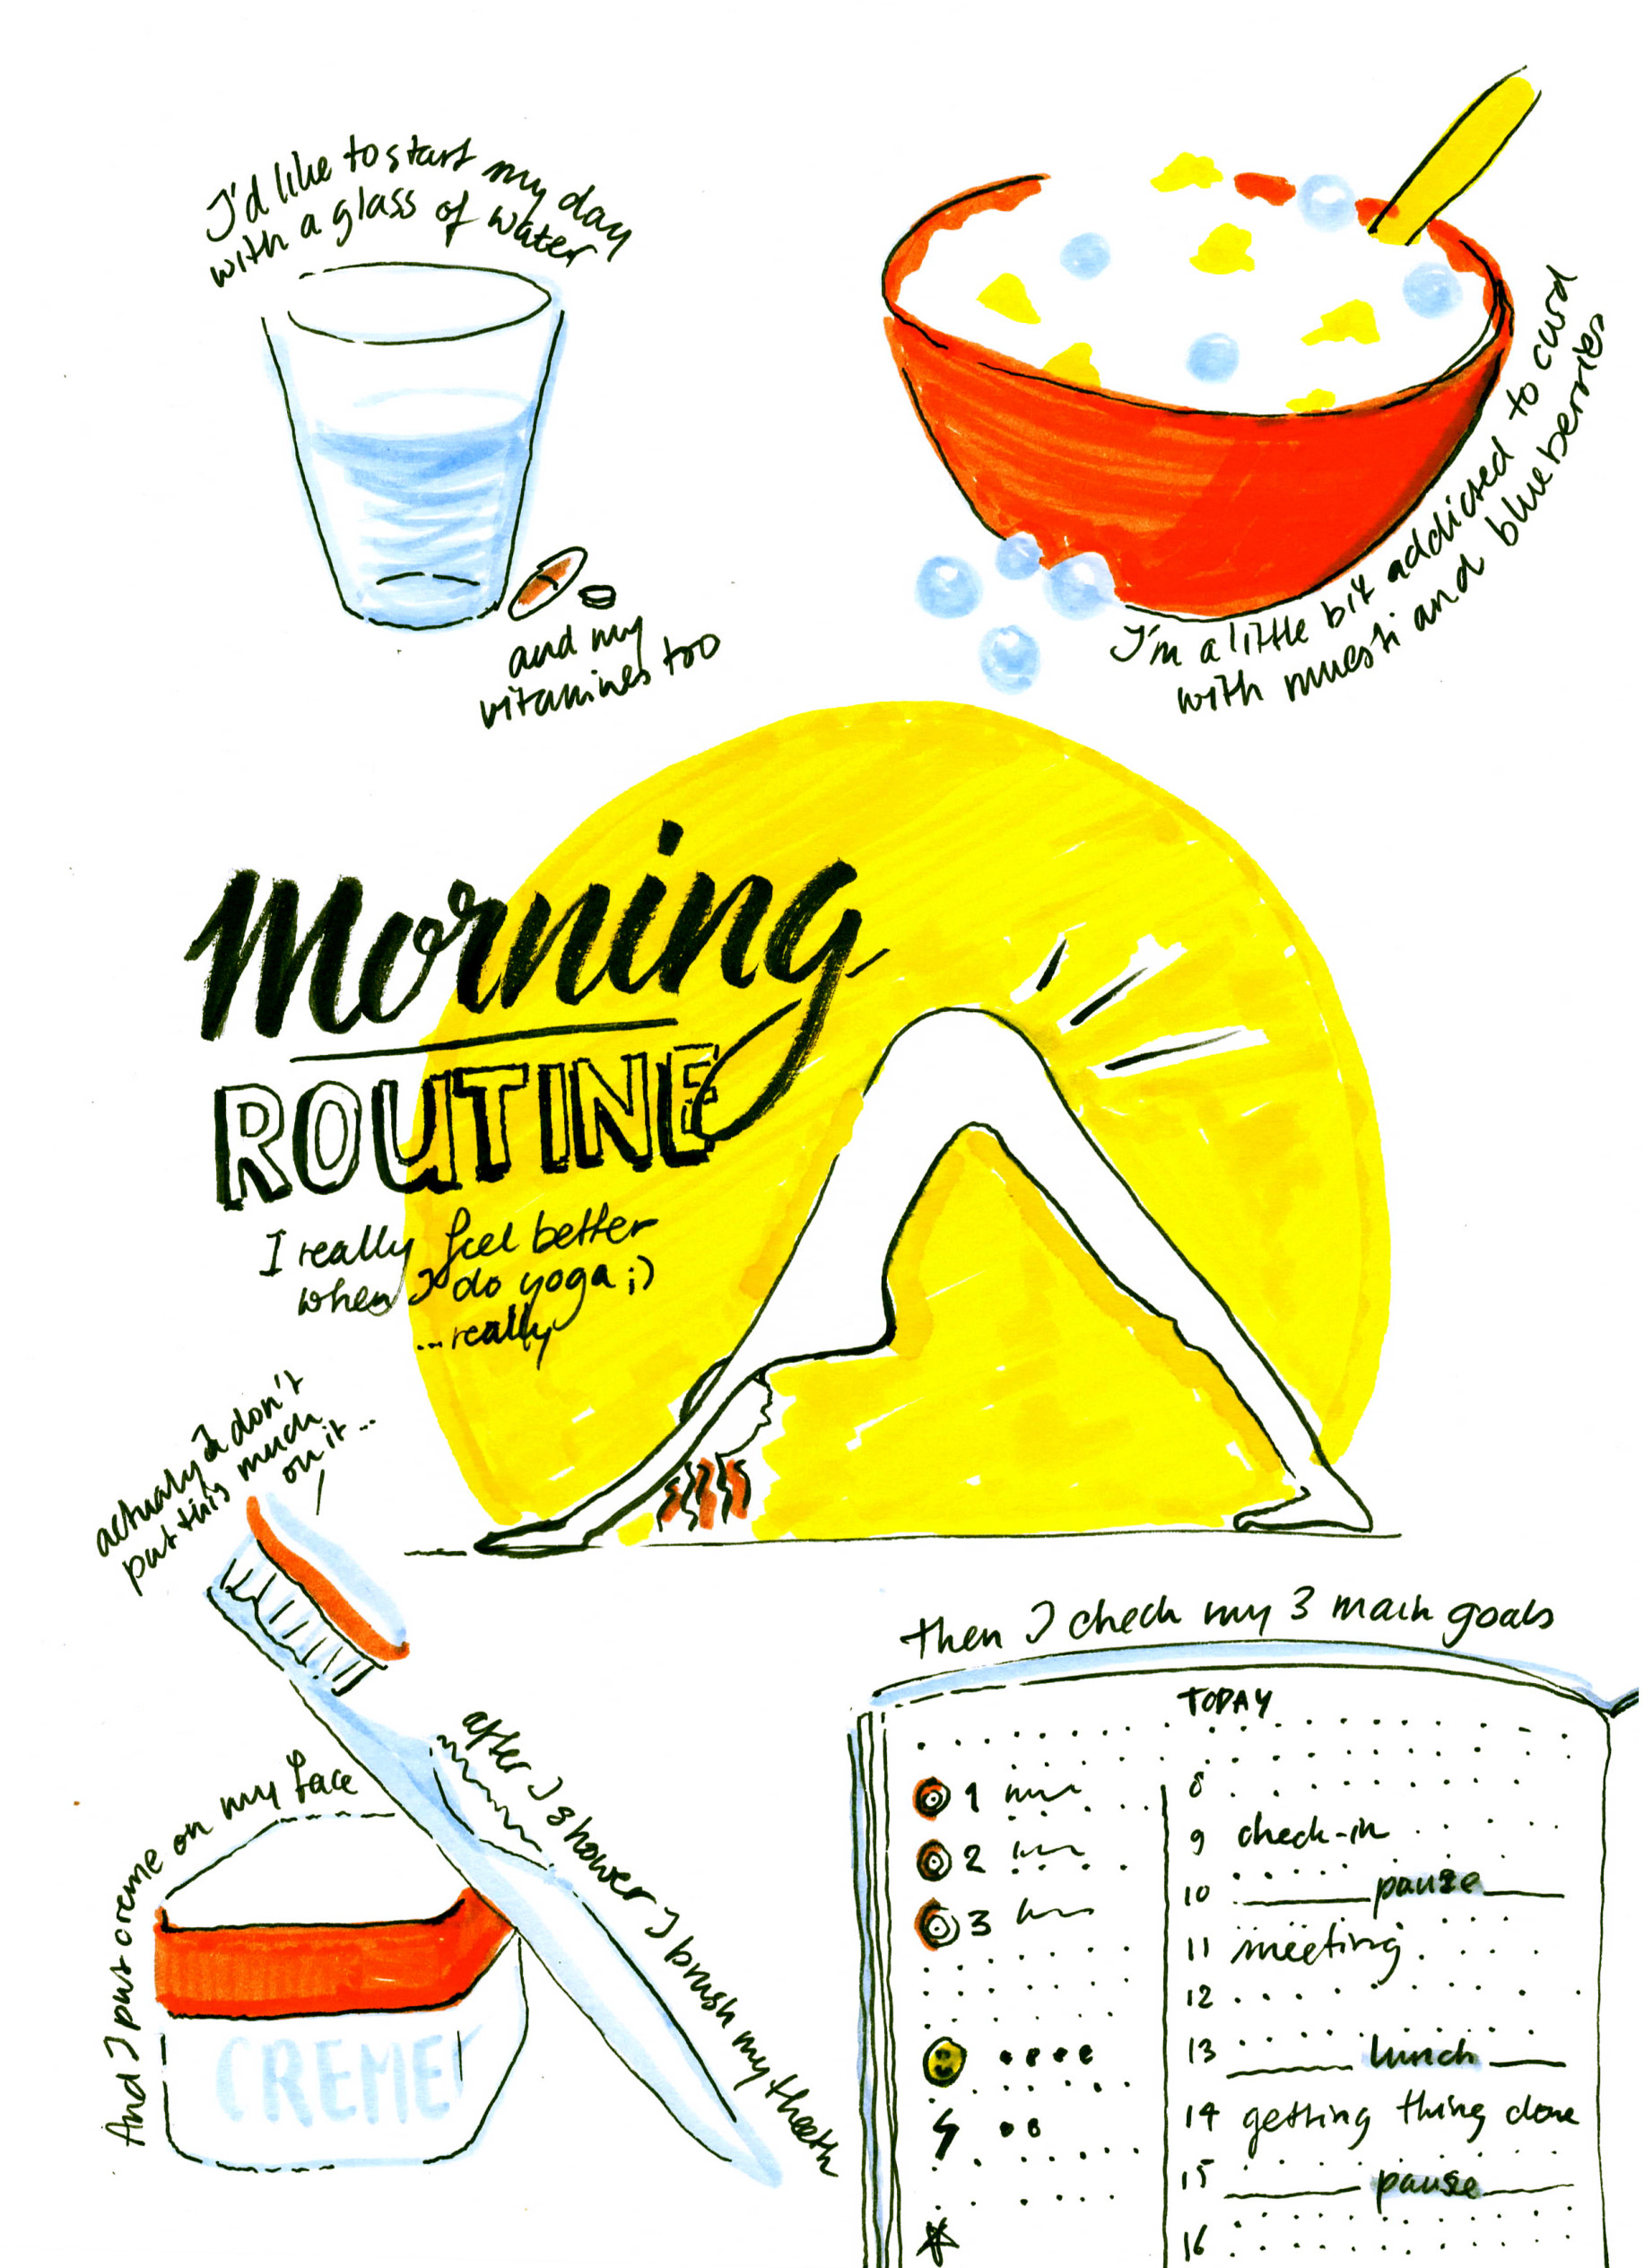 I'd like to start my day
with a glass of water
and my
vitamines too
I'm a little bit addicted to curd
with muesli and blueberries
Morning
ROUTINE
I really feel better
when I do yoga ;)
...really
actualy I don't
put this much
on it...
after I shower I brush my theeth
And I put creme on my face
CREME
then I check my 3 main goals
TODAY
1
2
3
8
9 check-in
10 pause
11 meeting
12
13 lunch
14 getting thing done
15 pause
16